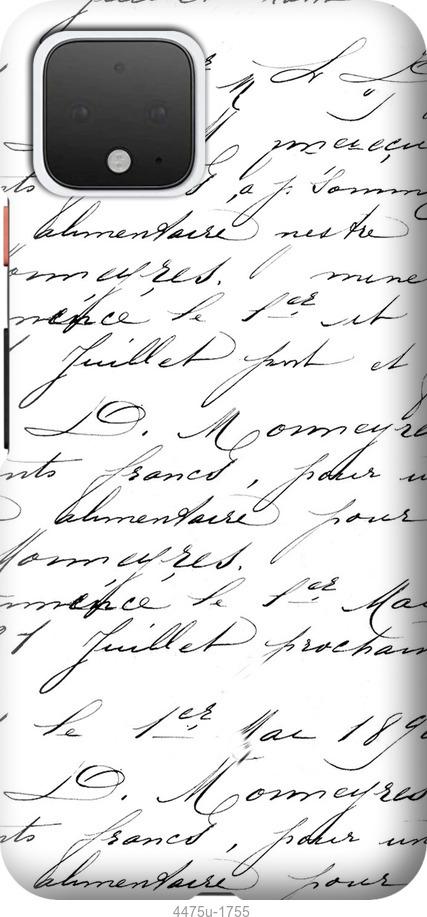 le
G, a p. Somm
alimentaire nestre
onneyres. mine
mence le 1er et
Juillet port et
D. Monneyre
nts francs, pour u
alimentaire pour
Monneyres.
mmence le 1er Mai
Juillet prochain
le 1er Mai 189
D. Monneyres
nts francs, pour un
alimentaire pour
4475u-1755